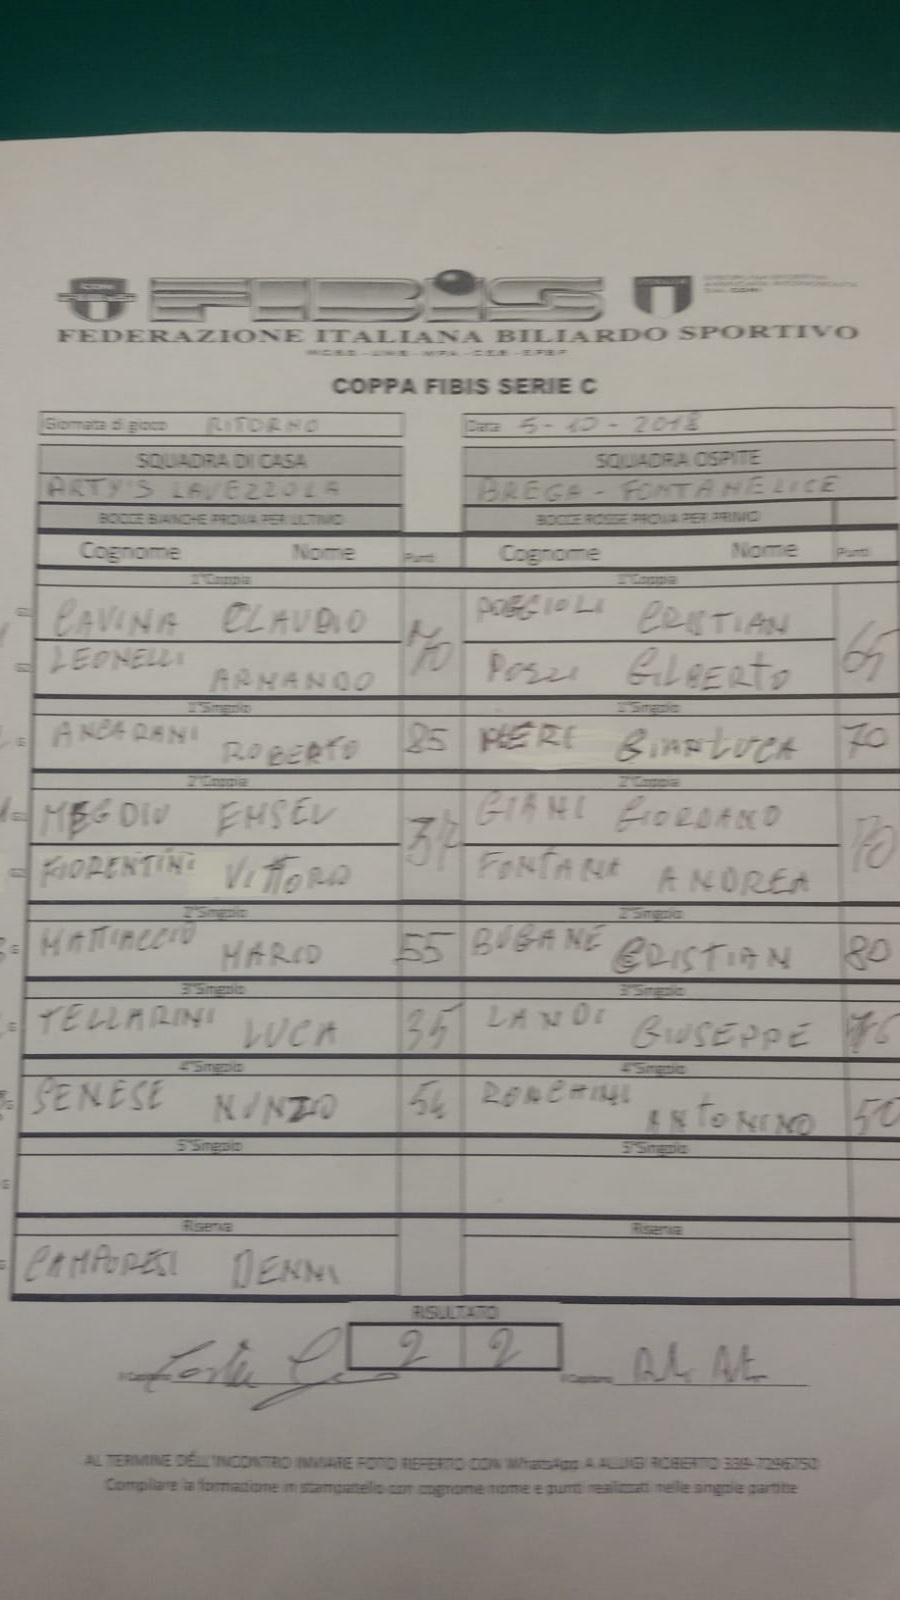 FIBIS
FEDERAZIONE ITALIANA BILIARDO SPORTIVO
COPPA FIBIS SERIE C
Giornata di gioco RITORNO Data 5-10-2018
SQUADRA DI CASA SQUADRA OSPITE
ARTY'S LAVEZZOLA BREGA - FONTANELICE
BOCCE BIANCHE PROVA PER ULTIMO BOCCE ROSSE PROVA PER PRIMO
Cognome Nome Punti Cognome Nome Punti
1°Coppia 1°Coppia
CAVINA CLAUDIO 70 POGGIOLI CRISTIAN 65
LEONELLI ARMANDO POZZI GILBERTO
1°Singolo 1°Singolo
ANCARANI ROBERTO 85 NERI GIANLUCA 70
2°Coppia 2°Coppia
EMSEL GIANI GIORDANO 70
FIORENTINI VITTORO FONTANA ANDREA
2°Singolo 2°Singolo
MATTIACCIO MARIO 55 BUGANE CRISTIAN 80
3°Singolo 3°Singolo
TELLARINI LUCA 35 LANDI GIUSEPPE
4°Singolo 4°Singolo
SENESE NUNZIO 54 RONCHINI ANTONINO 50
5°Singolo 5°Singolo
Riserva Riserva
CAMPORESI DENNI
RISULTATO
2 2
AL TERMINE DELL'INCONTRO INVIARE FOTO REFERTO CON WhatsApp A ALLUIGI ROBERTO 339-7296750
Compilare la formazione in stampatello con cognome nome e punti realizzati nelle singole partite